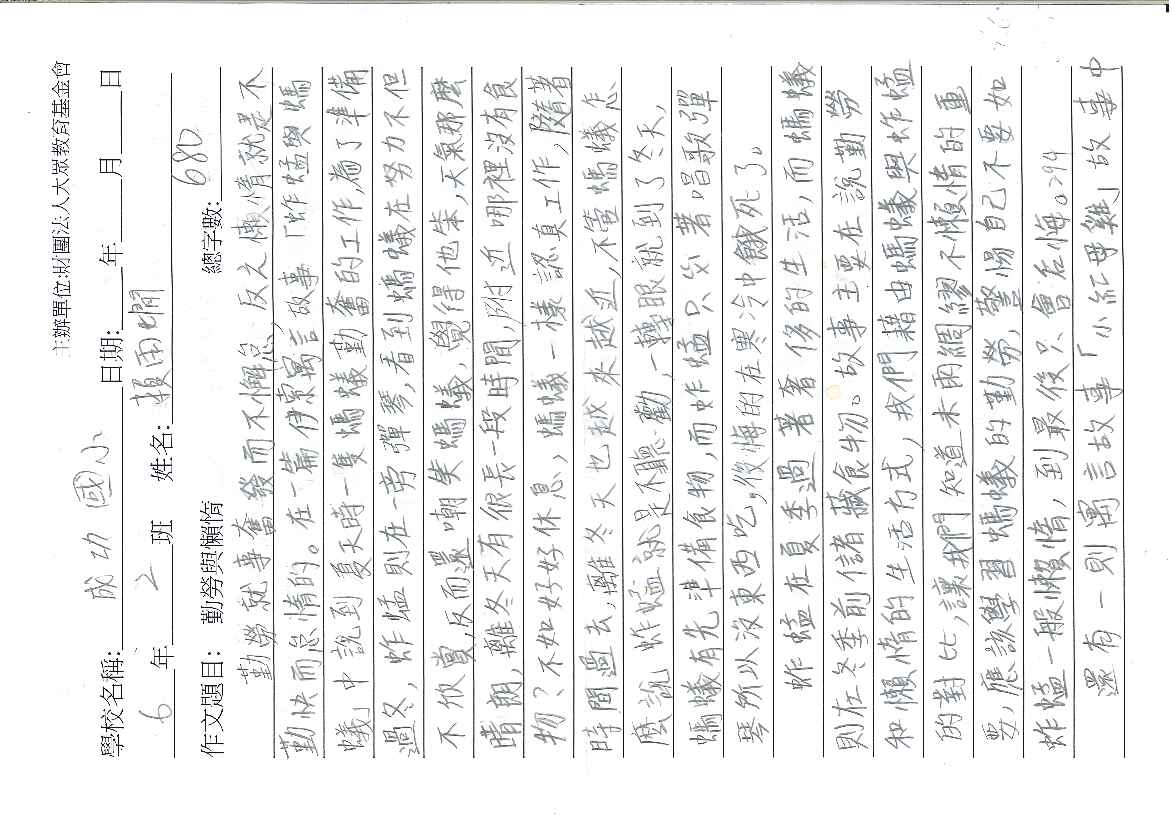 主辦單位:財團法人大眾教育基金會
學校名稱: 成功國小 日期: 年 月 日
6 年 2 班 姓名:
作文題目: 勤勞與懶惰 總字數: 680
勤勞就事奮發而不懈怠、反之懶惰就是不
勤快而怠惰的。在一篇伊索寓言,故事「蚱蜢與螞
蟻」中說到夏天時一隻螞蟻勤奮的工作,為了準備
過冬,蚱蜢則在一旁彈琴,看到螞蟻在努力不但
不欣賞,反而還嘲笑螞蟻,覺得他笨,天氣那麼
晴朗,離冬天有很長一段時間,附近哪裡沒有食
物?不如好好休息,螞蟻一樣認真工作,隨著
時間過去,離冬天也越來越近,不管螞蟻怎
麼說蚱蜢就是不聽勸,一轉眼就到了冬天,
螞蟻有先準備食物,而蚱蜢只忙著唱歌彈
琴所以沒東西吃,後悔的在寒冷中餓死了。
蚱蜢在夏季過著奢侈的生活,而螞蟻
則在冬季前儲藏食物。故事主要在說勤勞
和懶惰的生活方式,我們藉由螞蟻與蚱蜢
的對比,讓我們知道未雨綢繆不懶惰的重
要,應該學習螞蟻的勤勞,警惕自己不要如
蚱蜢一般懶惰,到最後只會後悔。294
還有一則寓言故事「小紅母雞」故事中